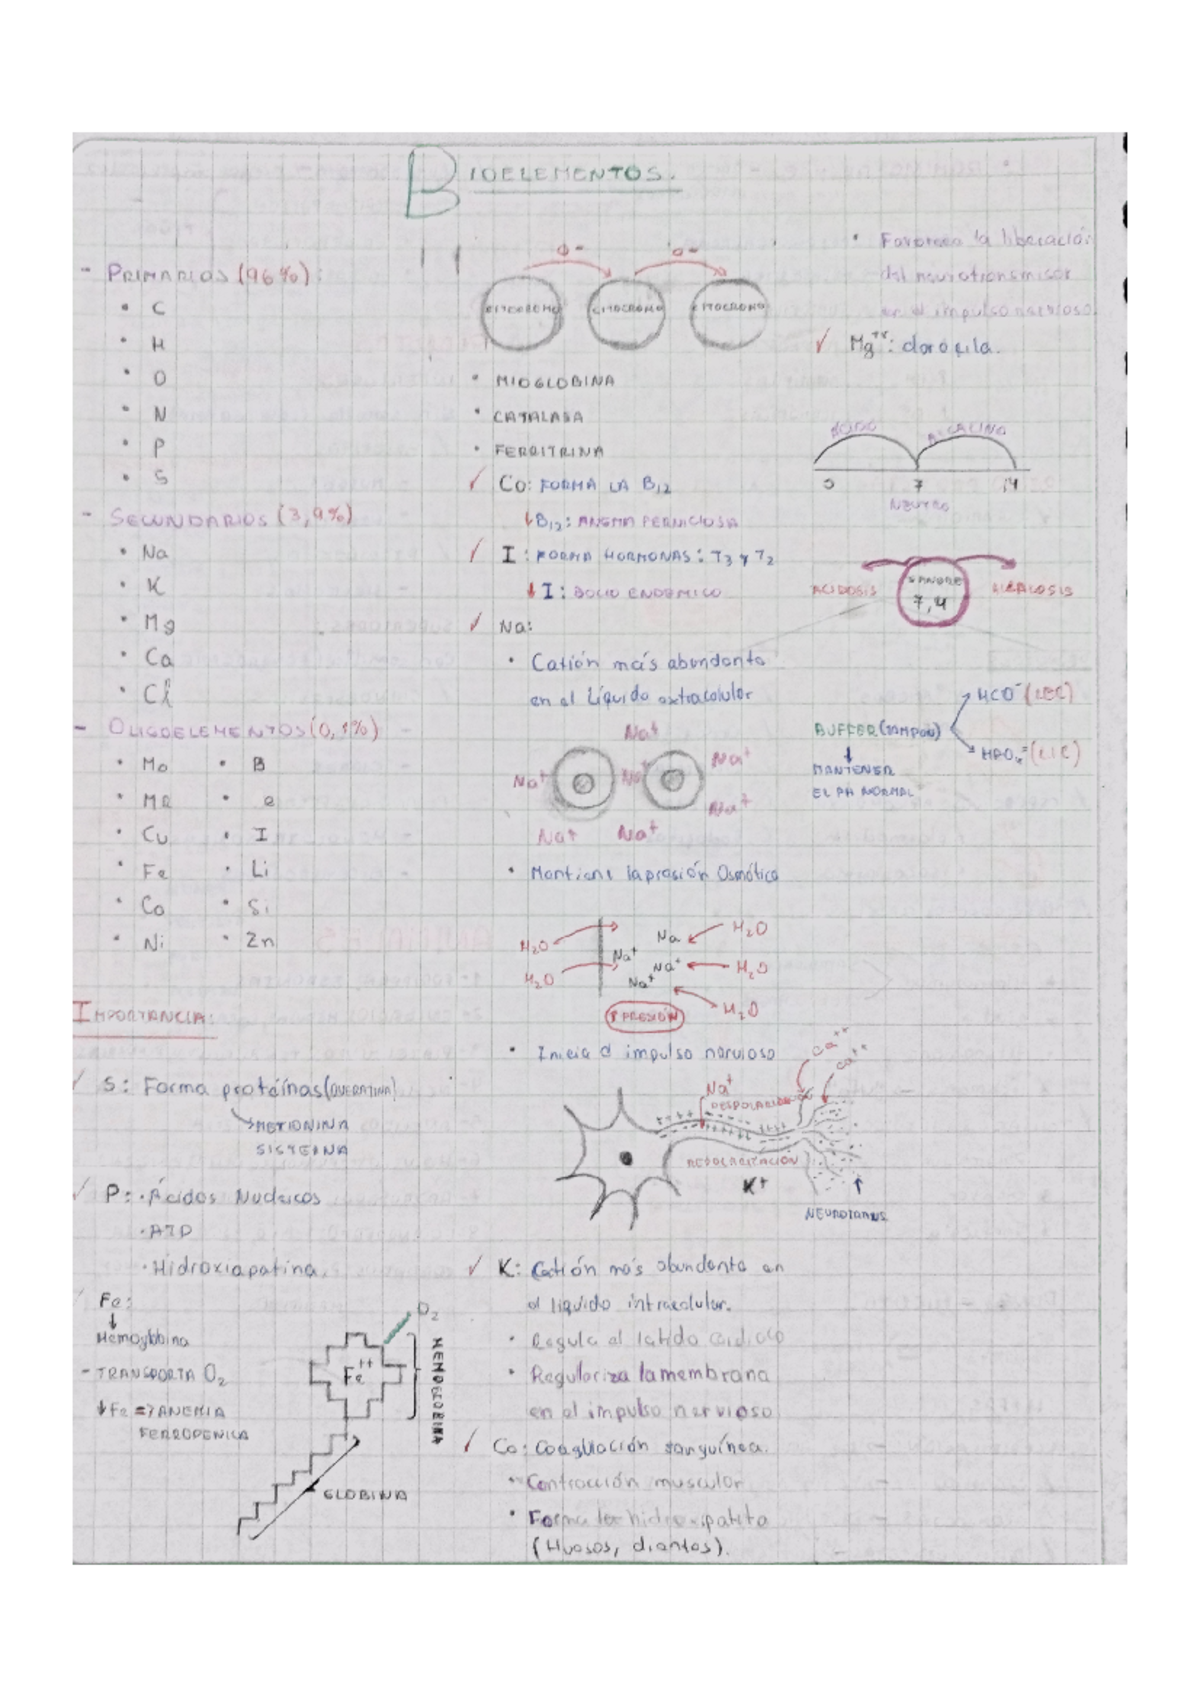 BIOELEMENTOS.
- PRIMARIOS (96%):
• C
• H
• O
• N
• P
• S
- SECUNDARIOS (3,9%)
• Na
• K
• Mg
• Ca
• Cl
- OLIGOELEMENTOS (0,1%)
• Mo • B
• Mn
• Cu • I
• Fe • Li
• Co • Si
• Ni • Zn
IMPORTANCIA:
✓ S: Forma proteínas (QUERATINA)
METIONINA
SISTEINA
✓ P: • Ácidos Nucleicos
• ATP
• Hidroxiapatina.
Fe:
↓
Hemoglobina
- TRANSPORTA O2
↓Fe => ANEMIA
FERROPENICA
O2
Fe++
HEMOGLOBINA
GLOBINA
e- e-
CITOCROMO CITOCROMO CITOCROMO
• MIOGLOBINA
• CATALASA
• FERRITRINA
✓ Co: FORMA LA B12
↓B12: ANEMIA PERNICIOSA
✓ I: FORMA HORMONAS: T3 y T2
↓ I: BOCIO ENDEMICO
✓ Na:
• Catión más abundante
en el Líquido extracelular
Na+
Na+ Na+ Na+
Na+
Na+ Na+
• Mantiene la presión Osmótica
H2O Na H2O
Na+
H2O Na+ H2O
Na+
↑ PRESIÓN H2O
• Inicia el impulso nervioso
Ca++
Ca++
Na+
DESPOLARIZACIÓN
REPOLARIZACIÓN
K+
NEUROTRANS.
✓ K: Catión más abundante en
el liquido intracelular.
• Regula el latido cardiaco
• Regulariza la membrana
en el impulso nervioso
✓ Ca: Coagulación sanguínea.
• Contracción muscular
• Forma la hidroxipatita
(Huesos, dientes).
• Favorece la liberación
del neurotransmisor
en el impulso nervioso.
✓ Mg++: clorofila.
ÁCIDO ALCALINO
0 7 14
NEUTRO
ACIDOSIS SANGRE ALCALOSIS
7,4
HCO- (LEC)
BUFFER (TAMPON)
HPO4= (LIC)
↓
MANTENER
EL PH NORMAL